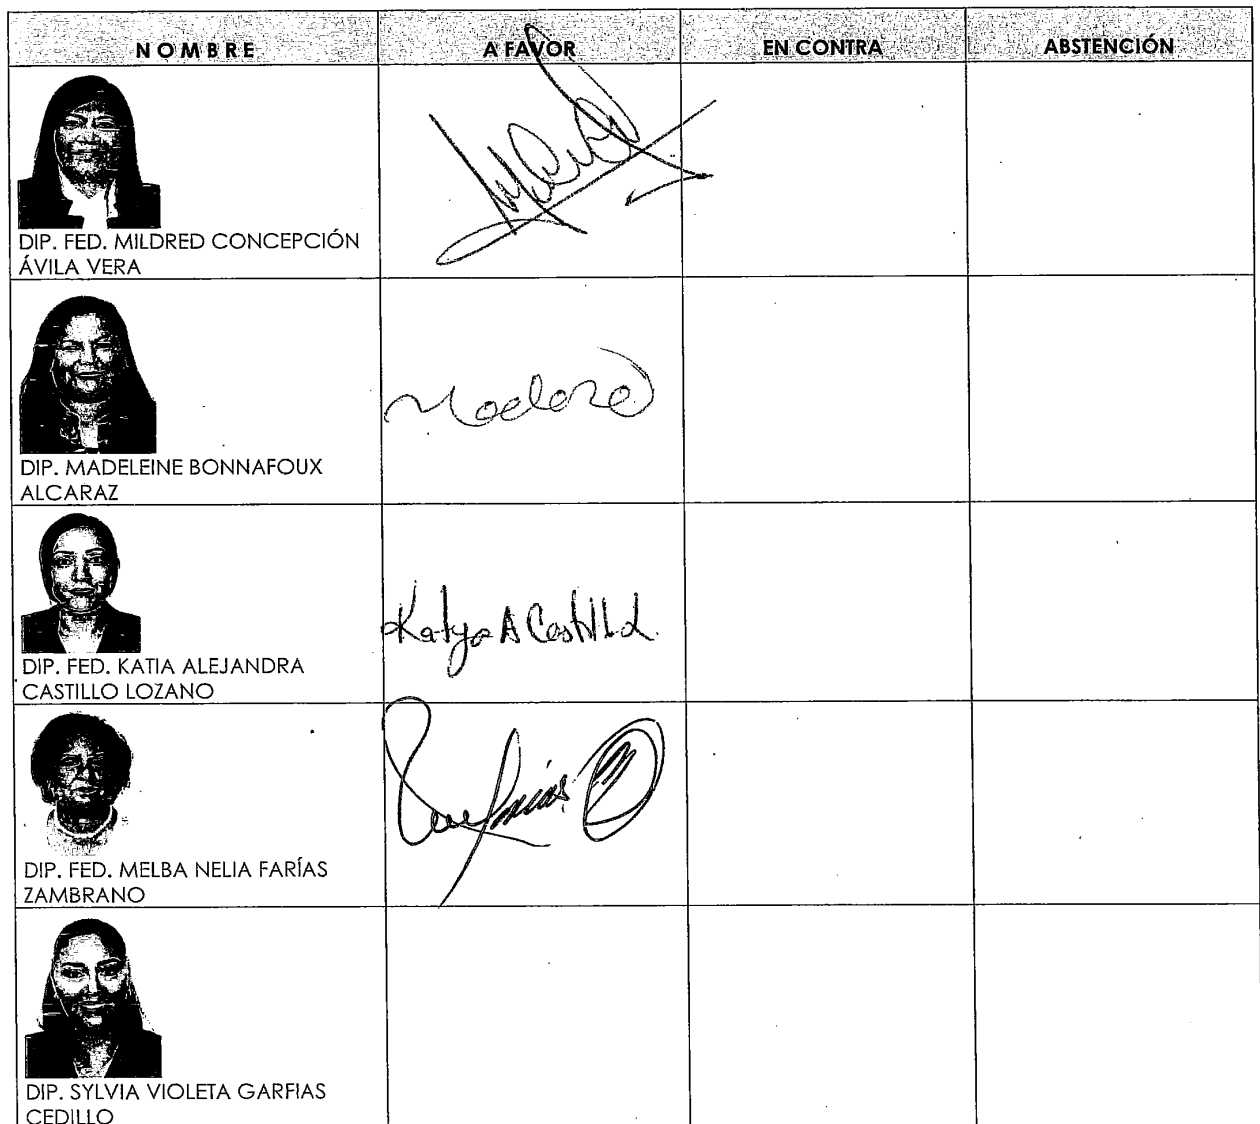 NOMBRE A FAVOR EN CONTRA ABSTENCIÓN
DIP. FED. MILDRED CONCEPCIÓN
ÁVILA VERA
DIP. MADELEINE BONNAFOUX
ALCARAZ
Katya A Castillo L
DIP. FED. KATIA ALEJANDRA
CASTILLO LOZANO
DIP. FED. MELBA NELIA FARÍAS
ZAMBRANO
DIP. SYLVIA VIOLETA GARFIAS
CEDILLO